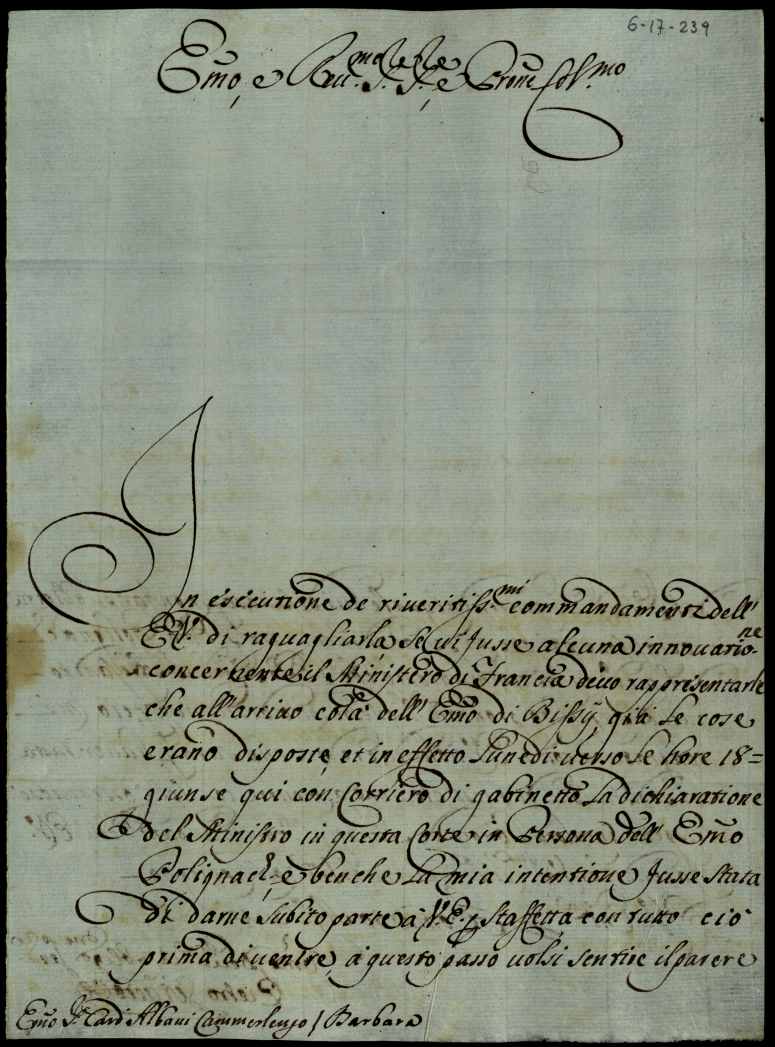 6-17-239
Emo, e Reu.mo Sre Sre e Prone Col.mo
In essecutione de riueritiss.mi commandamenti dell'
E.V. di raguagliarla se ui fusse alcuna innouatio.ne
concernente il Ministero di Francia deuo rappresentarle
che all'arriuo colà dell' Emo di Bissÿ già le cose
erano disposte, et in effetto Lunedi uerso le hore 18=
giunse qui con Corriero di gabinetto La dichiaratione
del Ministro in questa Corte in Persona dell' Emo
Polignach, e benche La mia intentione fusse stata
di darne subito parte à V.E. p staffetta con tutto ciò
prima di uenire à questo passo uolsi sentire il parere
Emo Sr. Card Albani Cammerlengo / Barbara